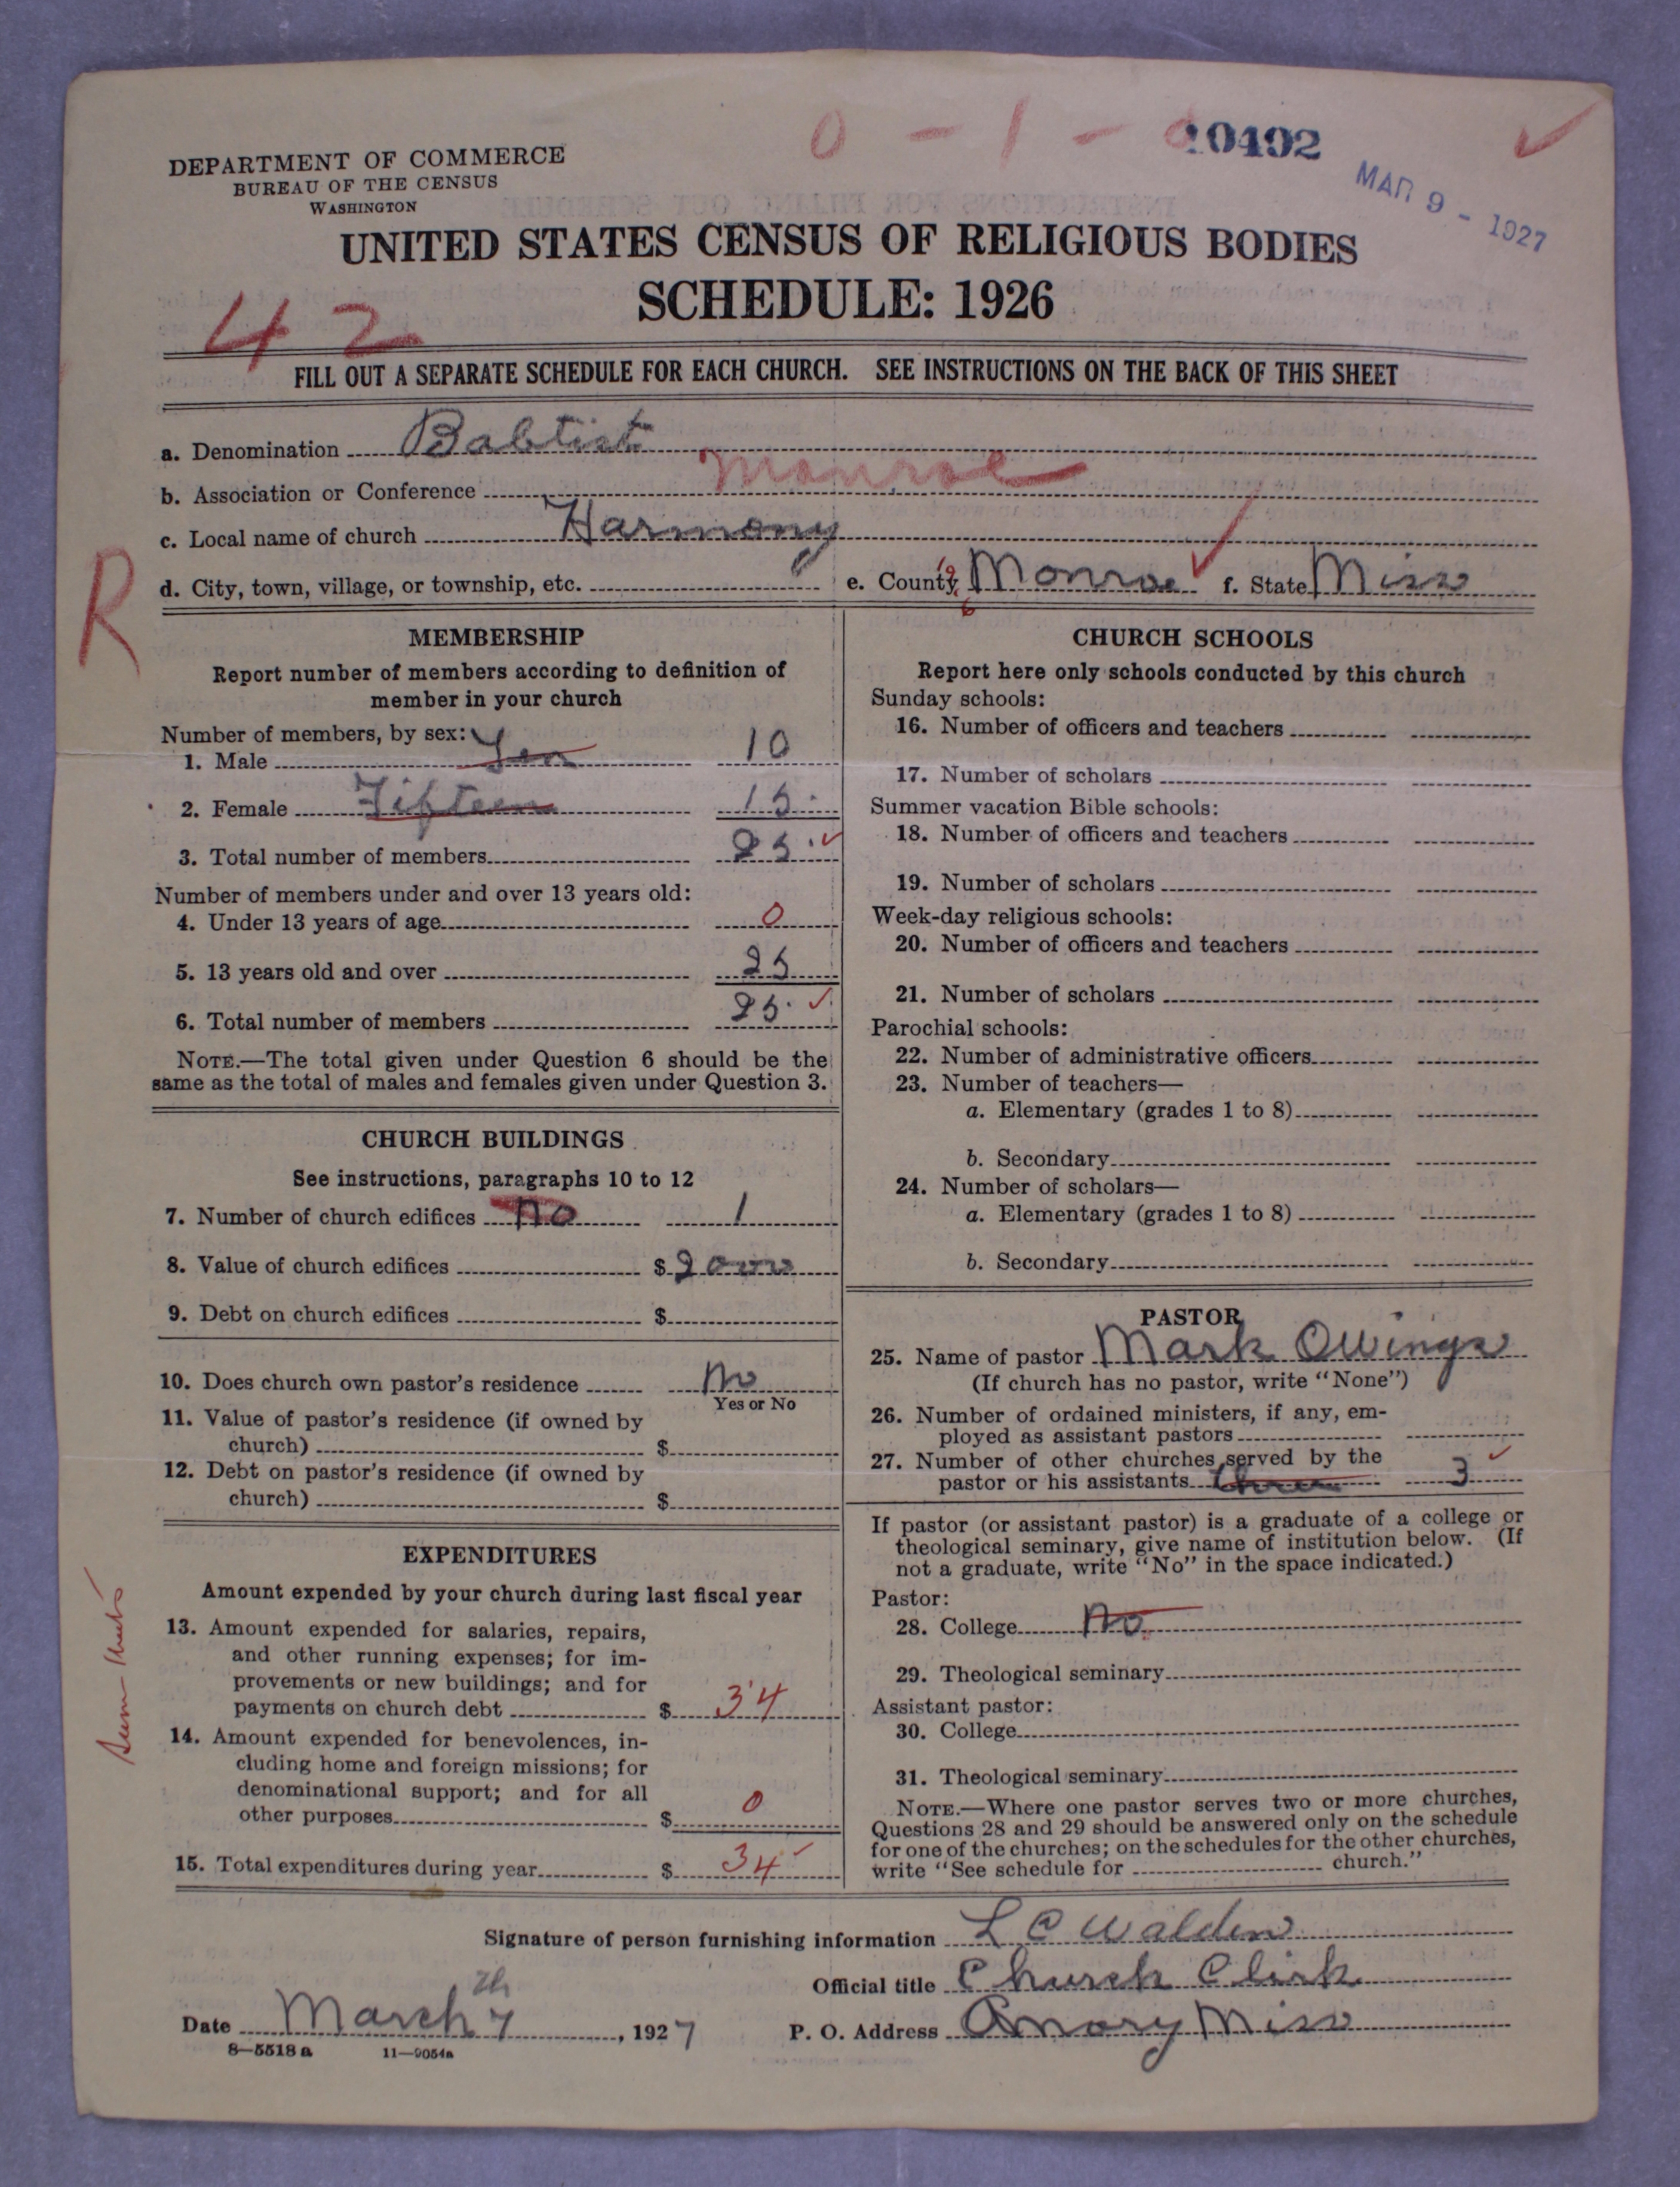 0 - 1 - 0
10492
MAR 9 - 1927
DEPARTMENT OF COMMERCE
BUREAU OF THE CENSUS
WASHINGTON
UNITED STATES CENSUS OF RELIGIOUS BODIES
SCHEDULE: 1926
42
FILL OUT A SEPARATE SCHEDULE FOR EACH CHURCH. SEE INSTRUCTIONS ON THE BACK OF THIS SHEET
a. Denomination Babtist
b. Association or Conference Monroe
c. Local name of church Harmony
d. City, town, village, or township, etc. e. County Monroe f. State Miss
R
MEMBERSHIP
Report number of members according to definition of
member in your church
Number of members, by sex:
1. Male Ten 10
2. Female Fifteen 15
3. Total number of members 25
Number of members under and over 13 years old:
4. Under 13 years of age 0
5. 13 years old and over 25
6. Total number of members 25
NOTE.—The total given under Question 6 should be the
same as the total of males and females given under Question 3.
CHURCH BUILDINGS
See instructions, paragraphs 10 to 12
7. Number of church edifices no 1
8. Value of church edifices $
9. Debt on church edifices $
10. Does church own pastor's residence no
Yes or No
11. Value of pastor's residence (if owned by
church) $
12. Debt on pastor's residence (if owned by
church) $
EXPENDITURES
Amount expended by your church during last fiscal year
13. Amount expended for salaries, repairs,
and other running expenses; for im-
provements or new buildings; and for
payments on church debt $ 34
14. Amount expended for benevolences, in-
cluding home and foreign missions; for
denominational support; and for all
other purposes $ 0
15. Total expenditures during year $ 34
CHURCH SCHOOLS
Report here only schools conducted by this church
Sunday schools:
16. Number of officers and teachers
17. Number of scholars
Summer vacation Bible schools:
18. Number of officers and teachers
19. Number of scholars
Week-day religious schools:
20. Number of officers and teachers
21. Number of scholars
Parochial schools:
22. Number of administrative officers
23. Number of teachers—
a. Elementary (grades 1 to 8)
b. Secondary
24. Number of scholars—
a. Elementary (grades 1 to 8)
b. Secondary
PASTOR
25. Name of pastor Mark Owings
(If church has no pastor, write "None")
26. Number of ordained ministers, if any, em-
ployed as assistant pastors
27. Number of other churches served by the
pastor or his assistants three 3
If pastor (or assistant pastor) is a graduate of a college or
theological seminary, give name of institution below. (If
not a graduate, write "No" in the space indicated.)
Pastor:
28. College No
29. Theological seminary
Assistant pastor:
30. College
31. Theological seminary
NOTE.—Where one pastor serves two or more churches,
Questions 28 and 29 should be answered only on the schedule
for one of the churches; on the schedules for the other churches,
write "See schedule for church."
Signature of person furnishing information L C Walden
Official title Church Clirk
Date March 7th, 1927 P. O. Address Amory Miss
8—5518a 11—9054a